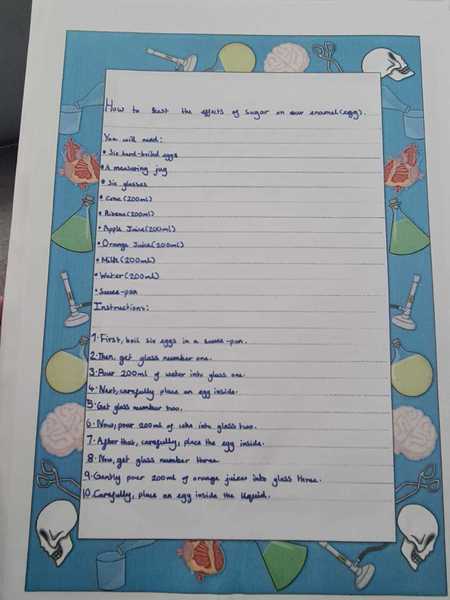 How to test the effects of sugar on our enamel (egg).
You will need:
• Six hard-boiled eggs
• A measuring jug
• Six glasses
• Coke (200ml)
• Ribena (200ml)
• Apple Juice (200ml)
• Orange Juice (200ml)
• Milk (200ml)
• Water (200ml)
• Sauce-pan
Instructions:
1. First, boil six eggs in a sauce-pan.
2. Then, get glass number one.
3. Pour 200ml of water into glass one.
4. Next, carefully place an egg inside.
5. Get glass number two.
6. Now, pour 200ml of coke into glass two.
7. After that, carefully, place the egg inside.
8. Now, get glass number three
9. Gently pour 200ml of orange juice into glass three.
10. Carefully, place an egg inside the liquid.